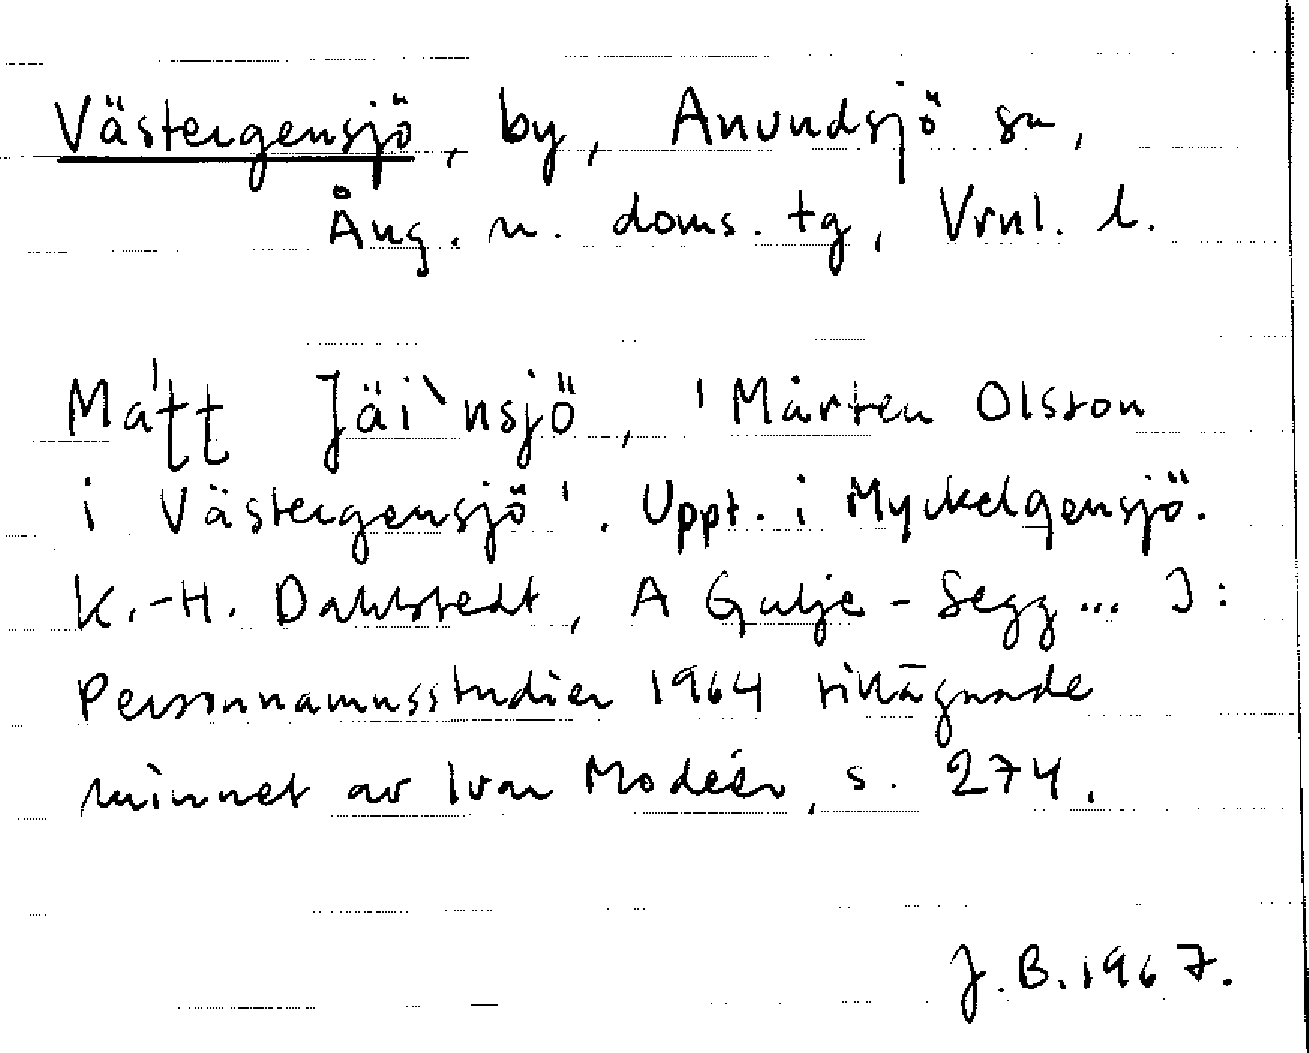 Västergensjö, by, Anundsjö sn,
Ång. n. doms. tg, Vrnl. l.
Ma'tt Jäi`nsjö, 'Mårten Olsson
i Västergensjö'. Uppt. i Myckelgensjö.
K.-H. Dahlstedt, A Gulje-Segg... I:
Personnamnsstudier 1964 tillägnade
minnet av Ivar Modéer, s. 274.
J.B. 1967.